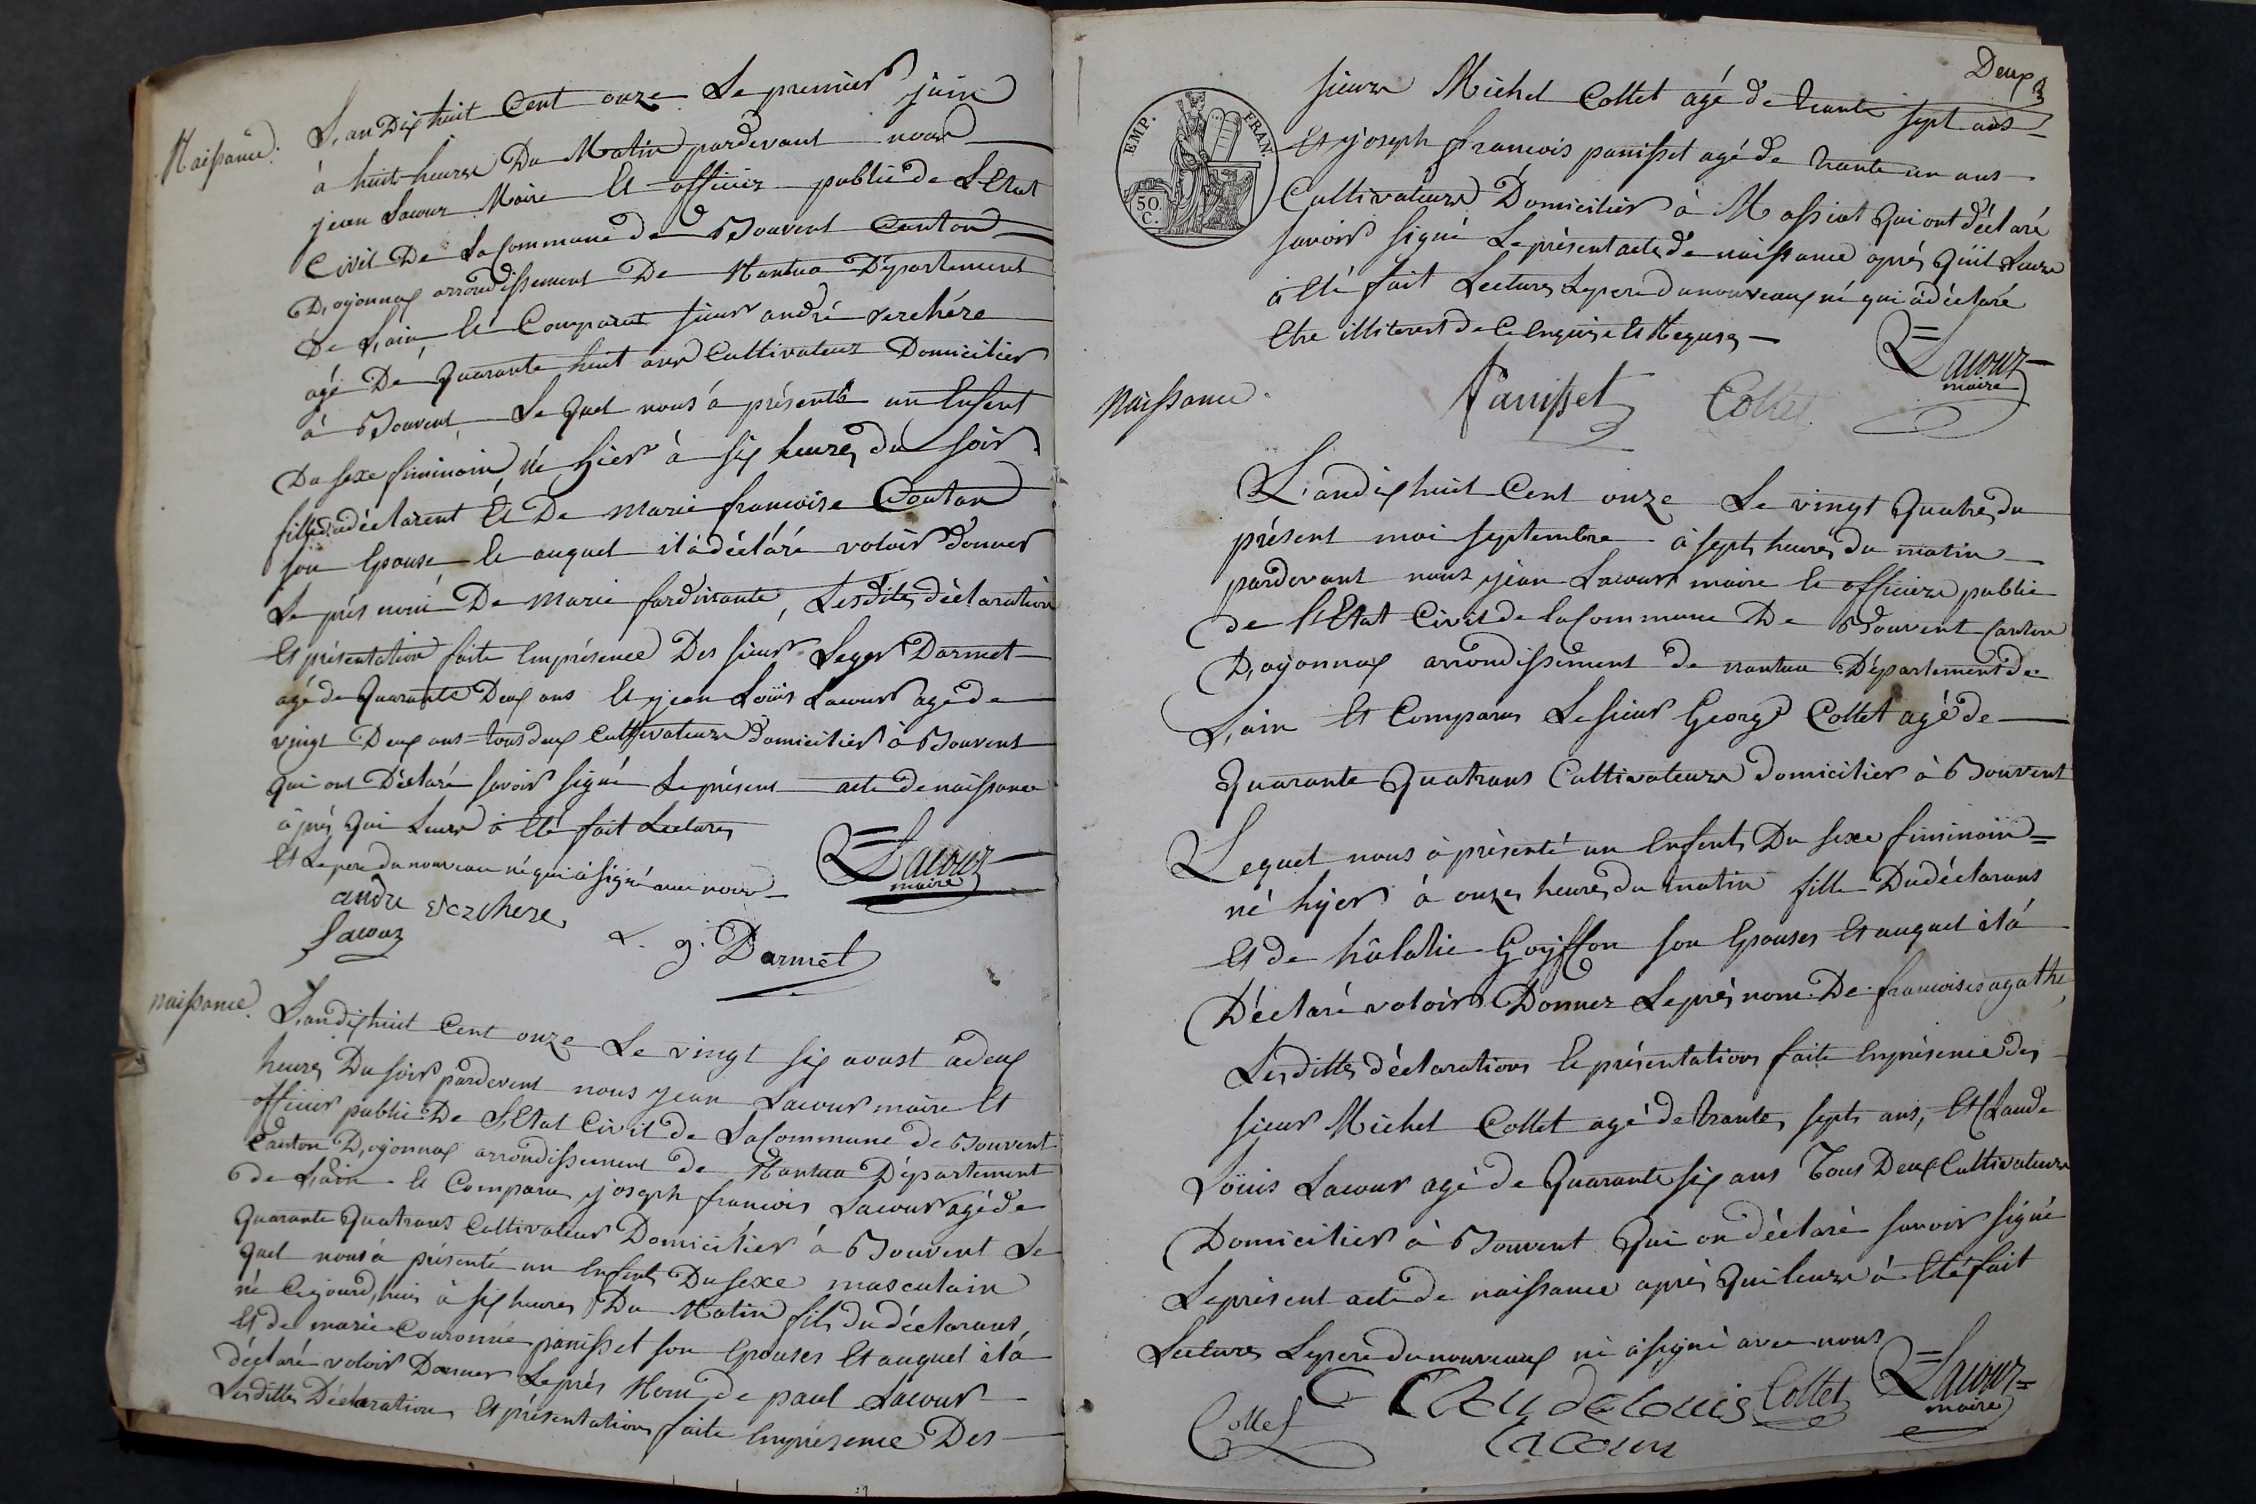 Naissance.
L'an Dix huit Cent onze Le premier juin
à huit heures Du Matin pardevant nous
jean Lacour Maire Et officier public de L'Etat
Civil De La Commune de Bouvent Canton
D'oyonnax arrondissement De Nantua Département
De L'ain, Et Comparut sieur andré verchére
agé De Quarante huit ans Cultivateur Domicilier
à Bouvent Le Quel nous á présenté un Enfent
Du sexe fiminain, né Hier à six heures du soir
fille du déclarent Et De Marie francoise Coutan
son Epouse Et auquel il à déclaré voloir donner
Le prés nom De Marie fardinante, Lesdites déclaration
Et présentation faite En présence Des sieur Leger Darmet
agé de Quarante Deux ans Et jean Loüis Lacour agé de
vingt Deux ans tous deux Cultivateurs domicilier à Bouvent
Qui ont Déclaré savoir signé Le présent acte de naissance
àprés Qui Leurs à Eté fait Lectures
Et Le pere du nouveau né qui à signé avec nous
Lacour
maire
andre verchere
Lacour
L. g. Darmet
naissance.
L'an dix huit Cent onze Le vingt six aoust à deux
heures Du soir pardevent nous jean Lacour maire Et
officier public De L'Etat Civil de La Commune de Bouvent
Canton D'oyonnax arrondissement de Nantua Département
de L'ain Et Comparu joseph francois Lacour agé de
Quarante Quatrans Cultivateur Domicilier à Bouvent Le
Quel nous à présenté un Enfent Du sexe masculain
né Cejourd'hui à six heures Du Matin fils du déclarant
Et de marie Couronnée panisset son Epouses Et auquel il à
déclaré voloir Donner Le prés Nom de paul Lacour
Lesdittes Déclarations Et présentations faite En présence Des
Deux
EMP. FRAN.
50
C.
sieurs Michel Collet agé de trante sept ans
Et joseph francois panisset agé de trante un ans
Cultivateurs Domicilier à Massiat Qui ont déclaré
savoir signé Le présent acte de naissance aprés Quil Leurs
à Eté fait Lectures Le pere du nouveaux né qui à déclaré
Etre illiteret de Ce Enquis et Requis
Lacour
maire
Panisset
Collet
Naissance.
L'an dix huit Cent onze Le vingt Quatre du
présent moi septembre à sept heures du matin
pardevant nous jean Lacour maire Et officiers public
de L'Etat Civil de La Commune De Bouvent Canton
D'oyonnax arrondissement de nantua Département de
L'ain Et Comparu Le sieur George Collet agé de
Quarante Quatrans Cultivateurs domicilier à Bouvent
Lequel nous à présenté un Enfent Du sexe fiminain
né hyer à onze heures du matin fille Du déclarans
Et de hûlalie Goyffon son Epouses Et auquel il á
Déclaré voloir Donner Le prés nom De francoises agathe,
Lesdittes déclarations Et présentations faite En présence des
sieur Michel Collet agé de trante sept ans, Et Claude
Loüis Lacour agé de Quarante six ans Tous Deux Cultivateurs
Domicilier à Bouvent Qui on déclaré savoir signé
Le présent acte de naissance aprés Qui leurs à Eté fait
Lectures Le pere du nouveaux né à signé avec nous
Lacour
maire
Collet
Claude louis
Lacour
Collet